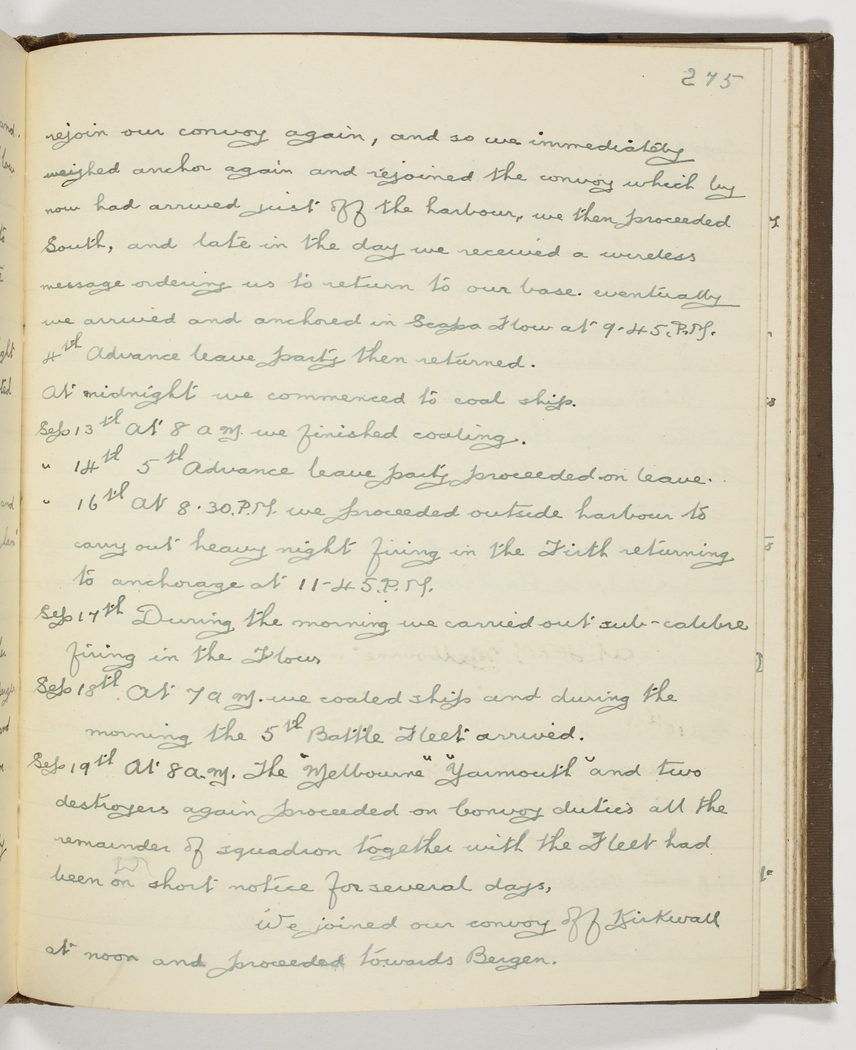 275
rejoin our convoy again, and so we immediately
weighed anchor again and rejoined the convoy which by
now had arrived just off the harbour, we then proceeded
South, and late in the day we received a wireless
message ordering us to return to our base. eventually
we arrived and anchored in Scapa Flow at 9-45.P.M.
4th Advance leave party then returned.
At midnight we commenced to coal ship.
Sep 13th At 8 a.m. we finished coaling.
" 14th 5th Advance leave party proceeded on leave.
" 16th At 8.30.P.M. we proceeded outside harbour to
carry out heavy night firing in the Firth returning
to anchorage at 11-45.P.M.
Sep 17th During the morning we carried out sub-calibre
firing in the Flow
Sep 18th At 7 a.m. we coaled ship and during the
morning the 5th Battle Fleet arrived.
Sep 19th At 8 a.m. The "Melbourne" "Yarmouth" and two
destroyers again proceeded on Convoy duties all the
remainder of squadron together with the Fleet had
been on short notice for several days,
We joined our convoy off Kirkwall
at noon and proceeded towards Bergen.